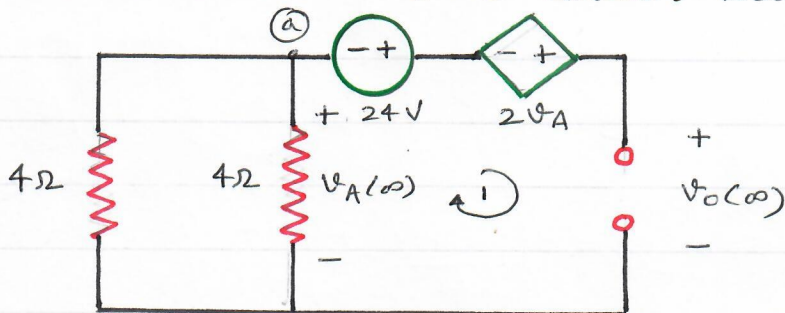 a
- +
- +
+ 24V
2vA
4Ω
4Ω
vA(∞)
1
+
vo(∞)
-
-